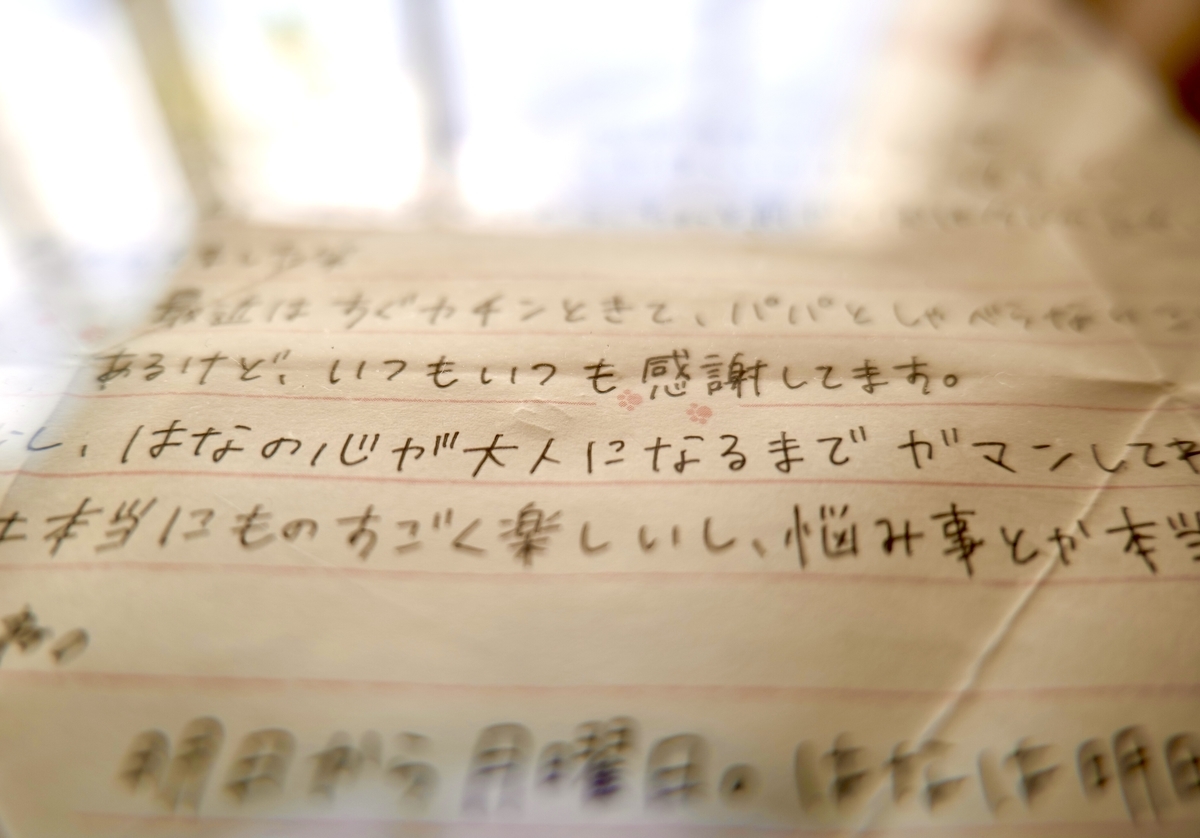 最近はすぐカチンときて、パパとしゃべらない
あるけど、いつもいつも感謝してます。
し、はなの心が大人になるまでガマンしてき
本当にものすごく楽しいし、悩み事とか本当
明日から月曜日。はなは明日